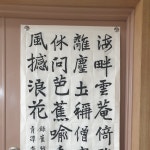 海畔雲菴倚
離塵土稱僧
休问芭蕉喻
風撼浪花